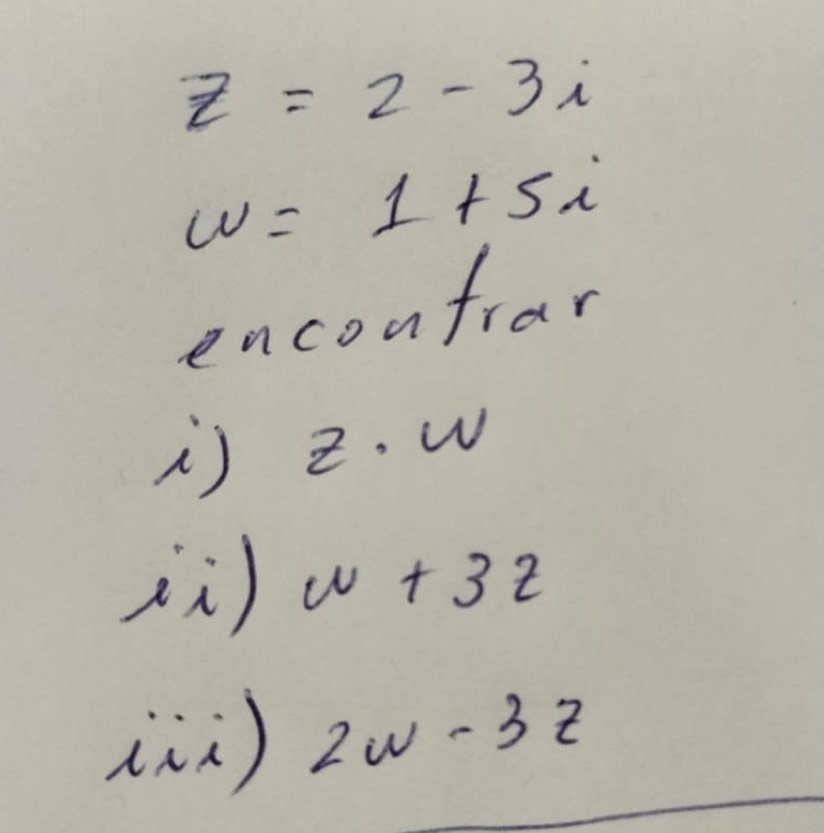 z = 2 - 3i
w = 1 + 5i
encontrar
i) z . w
ii) w + 3z
iii) 2w - 3z